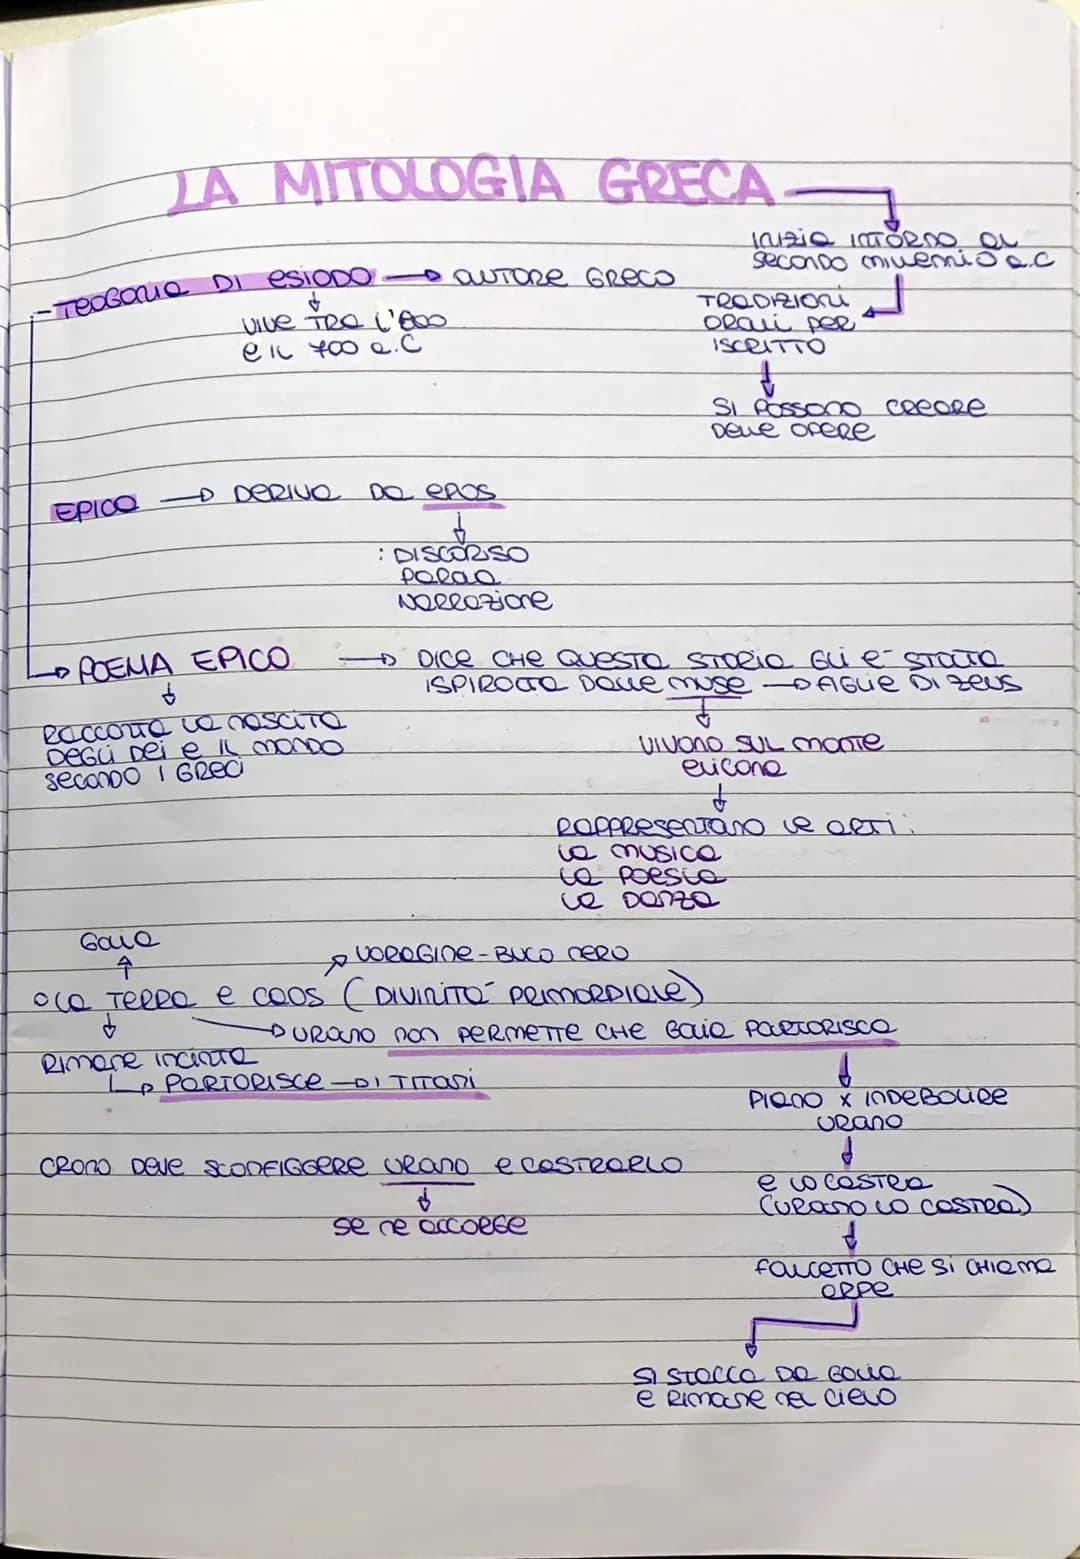 LA MITOLOGIA GRECA
INIZIA INTORNO AL
SECONDO MILLENNIO a.C
-TEOGONIA DI ESIODO → AUTORE GRECO
TRADIZIONI
ORALI PER
ISCRITTO
VIVE TRA L'800
E IL 700 a.C
SI POSSONO CREARE
DELLE OPERE
EPICA → DERIVA DA EPOS
: DISCORSO
PAROLA
NARRAZIONE
→ POEMA EPICO → DICE CHE QUESTA STORIA GLI E' STATA
ISPIRATA DALLE MUSE → FIGLIE DI ZEUS
RACCONTA LA NASCITA
DEGLI DEI E IL MONDO
SECONDO I GRECI
VIVONO SUL MONTE
ELICONA
RAPPRESENTANO LE ARTI:
LA MUSICA
LA POESIA
LA DANZA
GAIA
VORAGINE-BUCO NERO
LA TERRA E CAOS (DIVINITA' PRIMORDIALE)
→ URANO NON PERMETTE CHE GAIA PARTORISCA
RIMANE INCINTA
→ PARTORISCE → I TITANI
PIANO X INDEBOLIRE
URANO
CRONO DEVE SCONFIGGERE URANO E CASTRARLO
SE NE ACCORGE
E LO CASTRA
(URANO LO CASTRA)
FALCETTO CHE SI CHIAMA
ARPE
SI STACCA DA GAIA
E RIMANE NEL CIELO